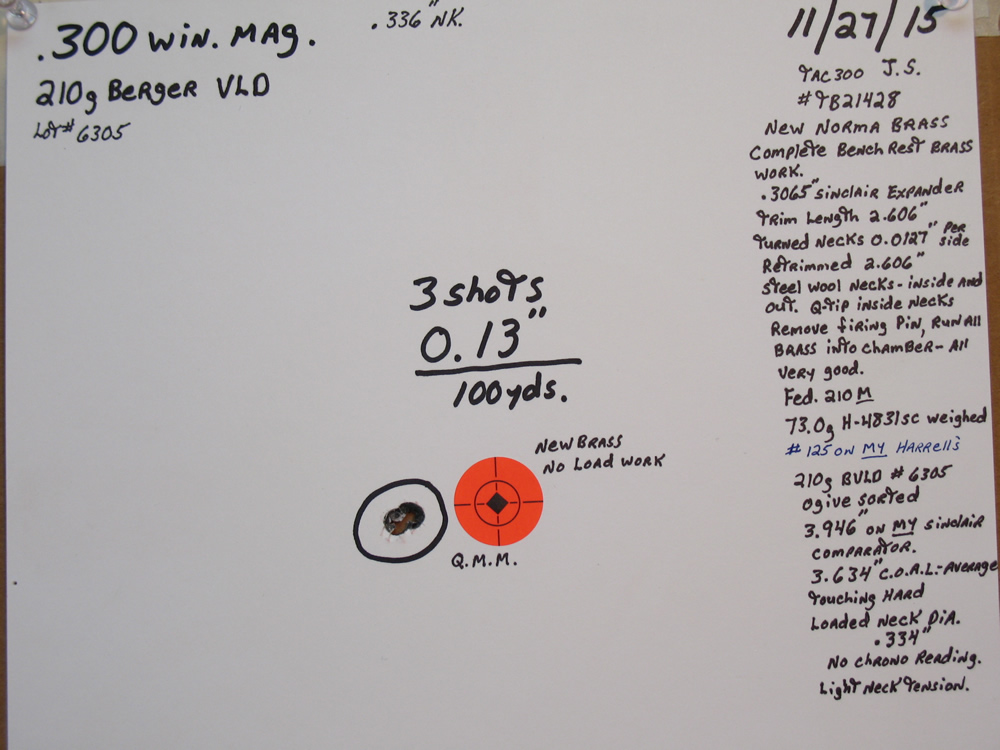 .300 Win. Mag.
.336" NK.
11/27/15
210g Berger VLD
Lot# 6305
TAC300 J.S.
#TB21428
New Norma Brass
Complete Bench Rest Brass
work.
.3065" Sinclair Expander
Trim Length 2.606"
Turned Necks 0.0127" Per side
Retrimmed 2.606"
Steel wool Necks - inside and
out. Q-tip inside Necks
Remove firing Pin, Run All
Brass into chamber - All
very good.
Fed. 210 M
73.0g H-4831sc weighed
#125 on My Harrell's
210g BVLD #6305
ogive sorted
3.946" on My Sinclair
comparator.
3.634" C.O.A.L.- Average
Touching Hard
Loaded Neck Dia.
.334"
No chrono Reading.
Light Neck Tension.
3 shots
0.13"
100yds.
New Brass
No Load Work
Q.M.M.